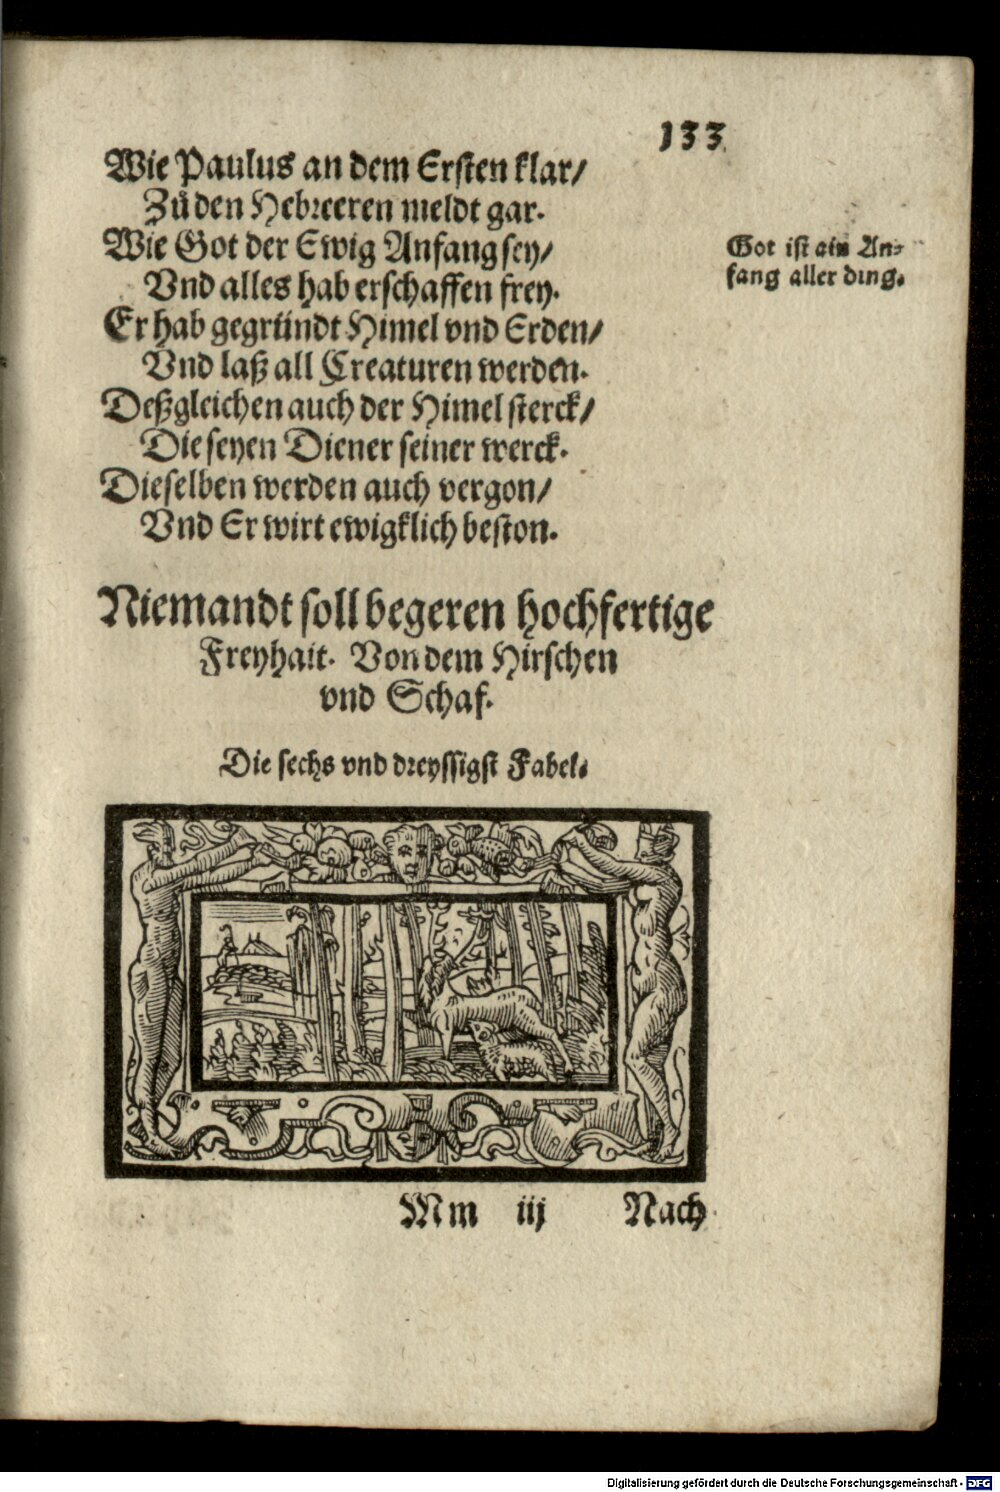 133
Wie Paulus an dem Ersten klar/
Zů den Hebreeren meldt gar.
Wie Got der Ewig Anfang sey/
Vnd alles hab erschaffen frey.
Er hab gegründt Himel vnd Erden/
Vnd laß all Creaturen werden.
Deßgleichen auch der Himel sterck/
Die seyen Diener seiner werck.
Dieselben werden auch vergon/
Vnd Er wirt ewigklich beston.
Got ist ain An⸗
fang aller ding.
Niemandt soll begeren hochfertige
Freyhait. Von dem Hirschen
vnd Schaf.
Die sechs vnd dreyssigst Fabel.
Mm iij Nach
Digitalisierung gefördert durch die Deutsche Forschungsgemeinschaft - DFG